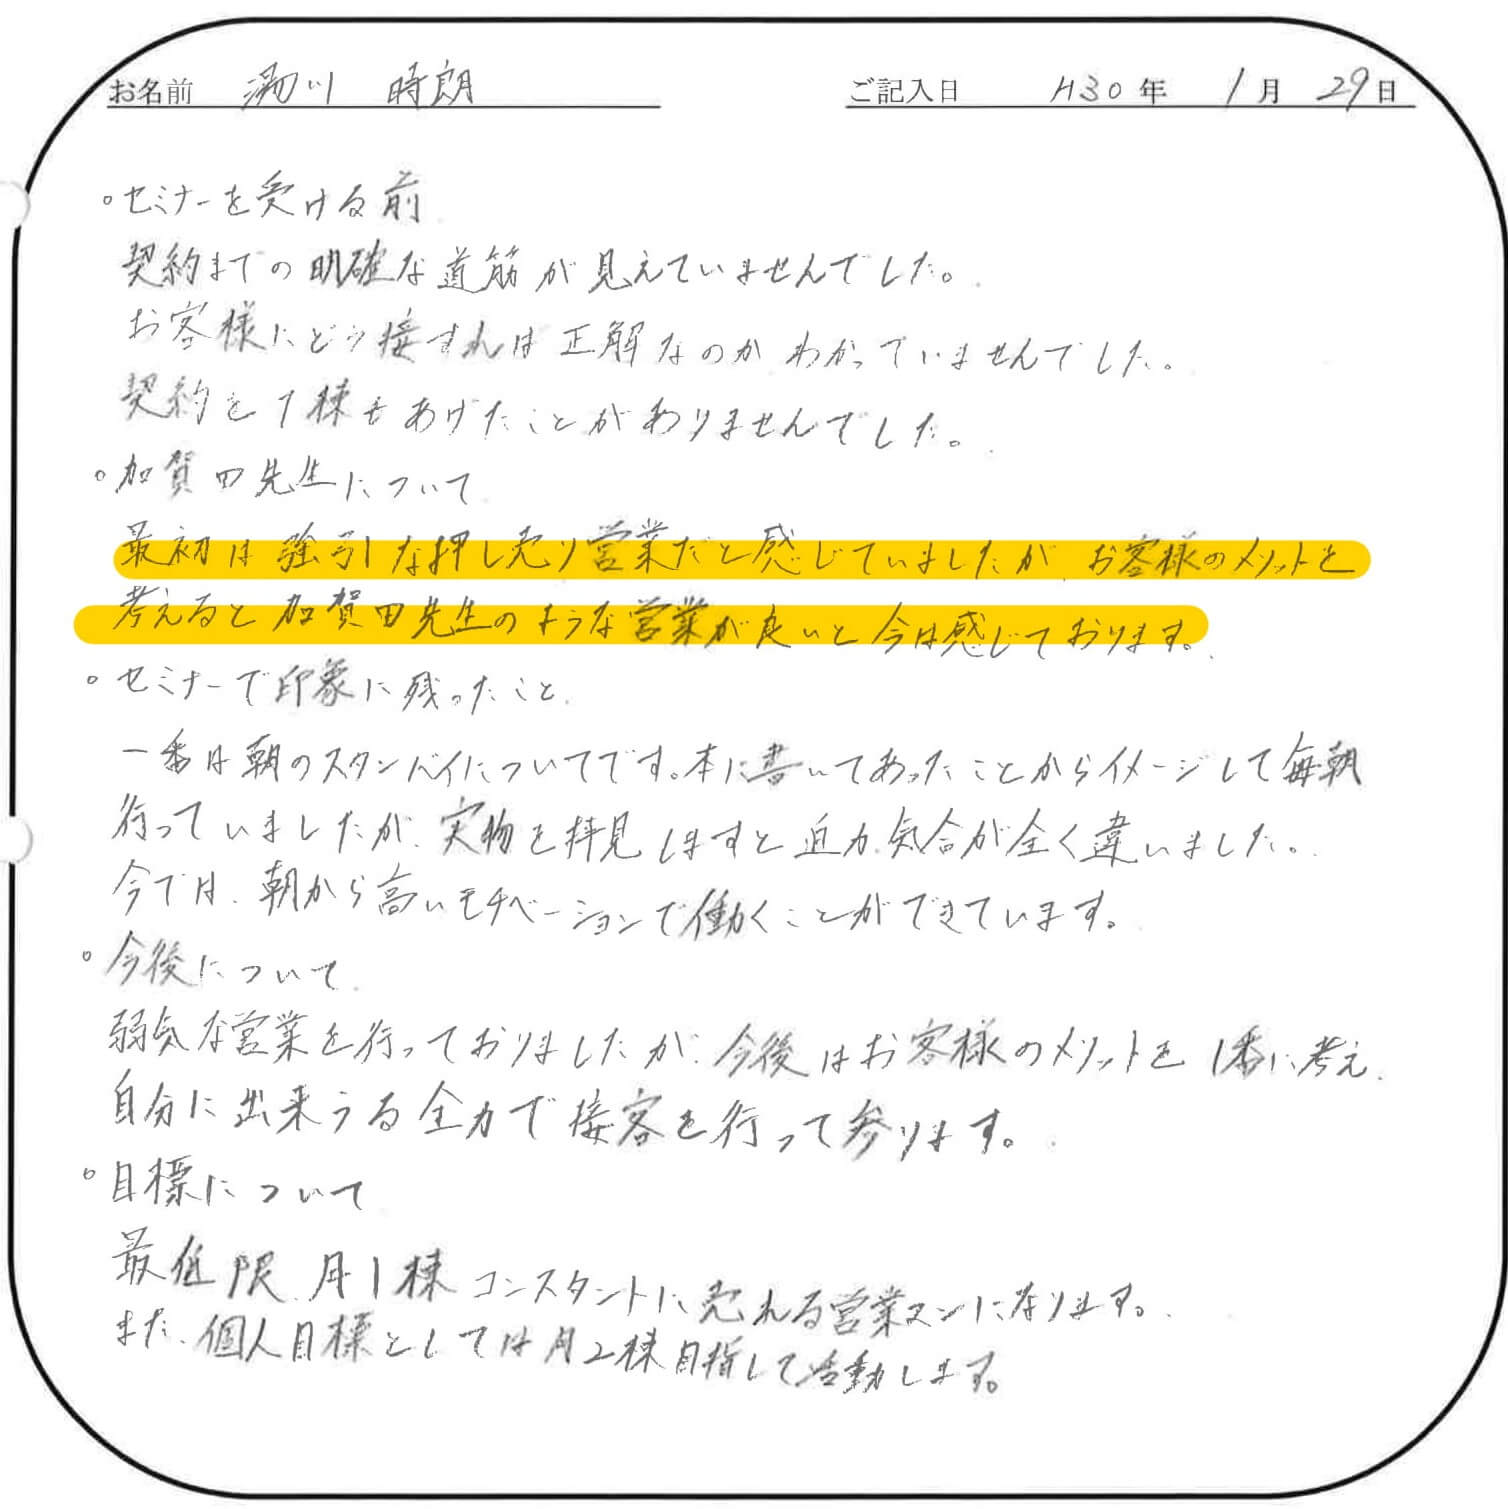 お名前 湯川 時朗
ご記入日 H30年 1月 29日
。セミナーを受ける前
契約までの明確な道筋が見えていませんでした。
お客様にどう接すれば正解なのかわかっていませんでした。
契約を1棟もあげたことがありませんでした。
。加賀田先生について
最初は強引な押し売り営業だと感じていましたが、お客様のメリットを
考えると加賀田先生のような営業が良いと今は感じております。
。セミナーで印象に残ったこと
一番は朝のスタンバイについてです。本に書いてあったことからイメージして毎朝
行っていましたが、実物を拝見しますと迫力、気合が全く違いました。
今では、朝から高いモチベーションで働くことができています。
。今後について
弱気な営業を行っておりましたが、今後はお客様のメリットを1番に考え、
自分に出来うる全力で接客を行って参ります。
。目標について
最低限、月1棟コンスタントに売れる営業マンになります。
また、個人目標としては月2棟目指して活動します。